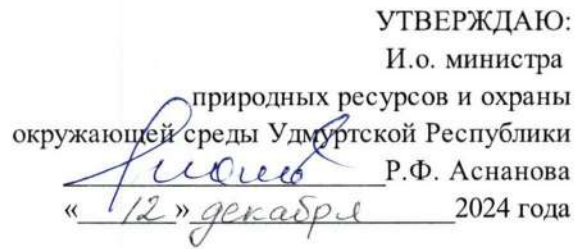 УТВЕРЖДАЮ:
И.о. министра
природных ресурсов и охраны
окружающей среды Удмуртской Республики
Р.Ф. Аснанова
« 12 » декабря 2024 года